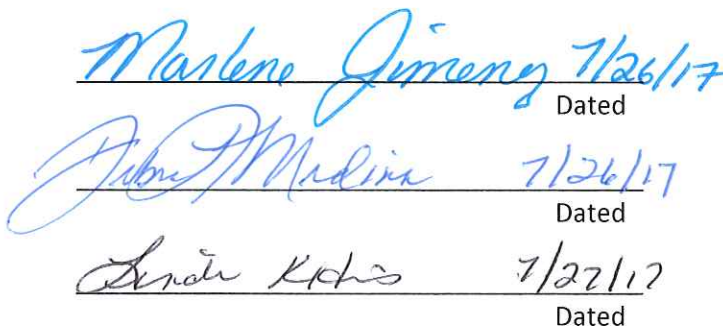 Marlene Jimenez 7/26/17
Dated
Medina 7/26/17
Dated
Linda 7/27/17
Dated